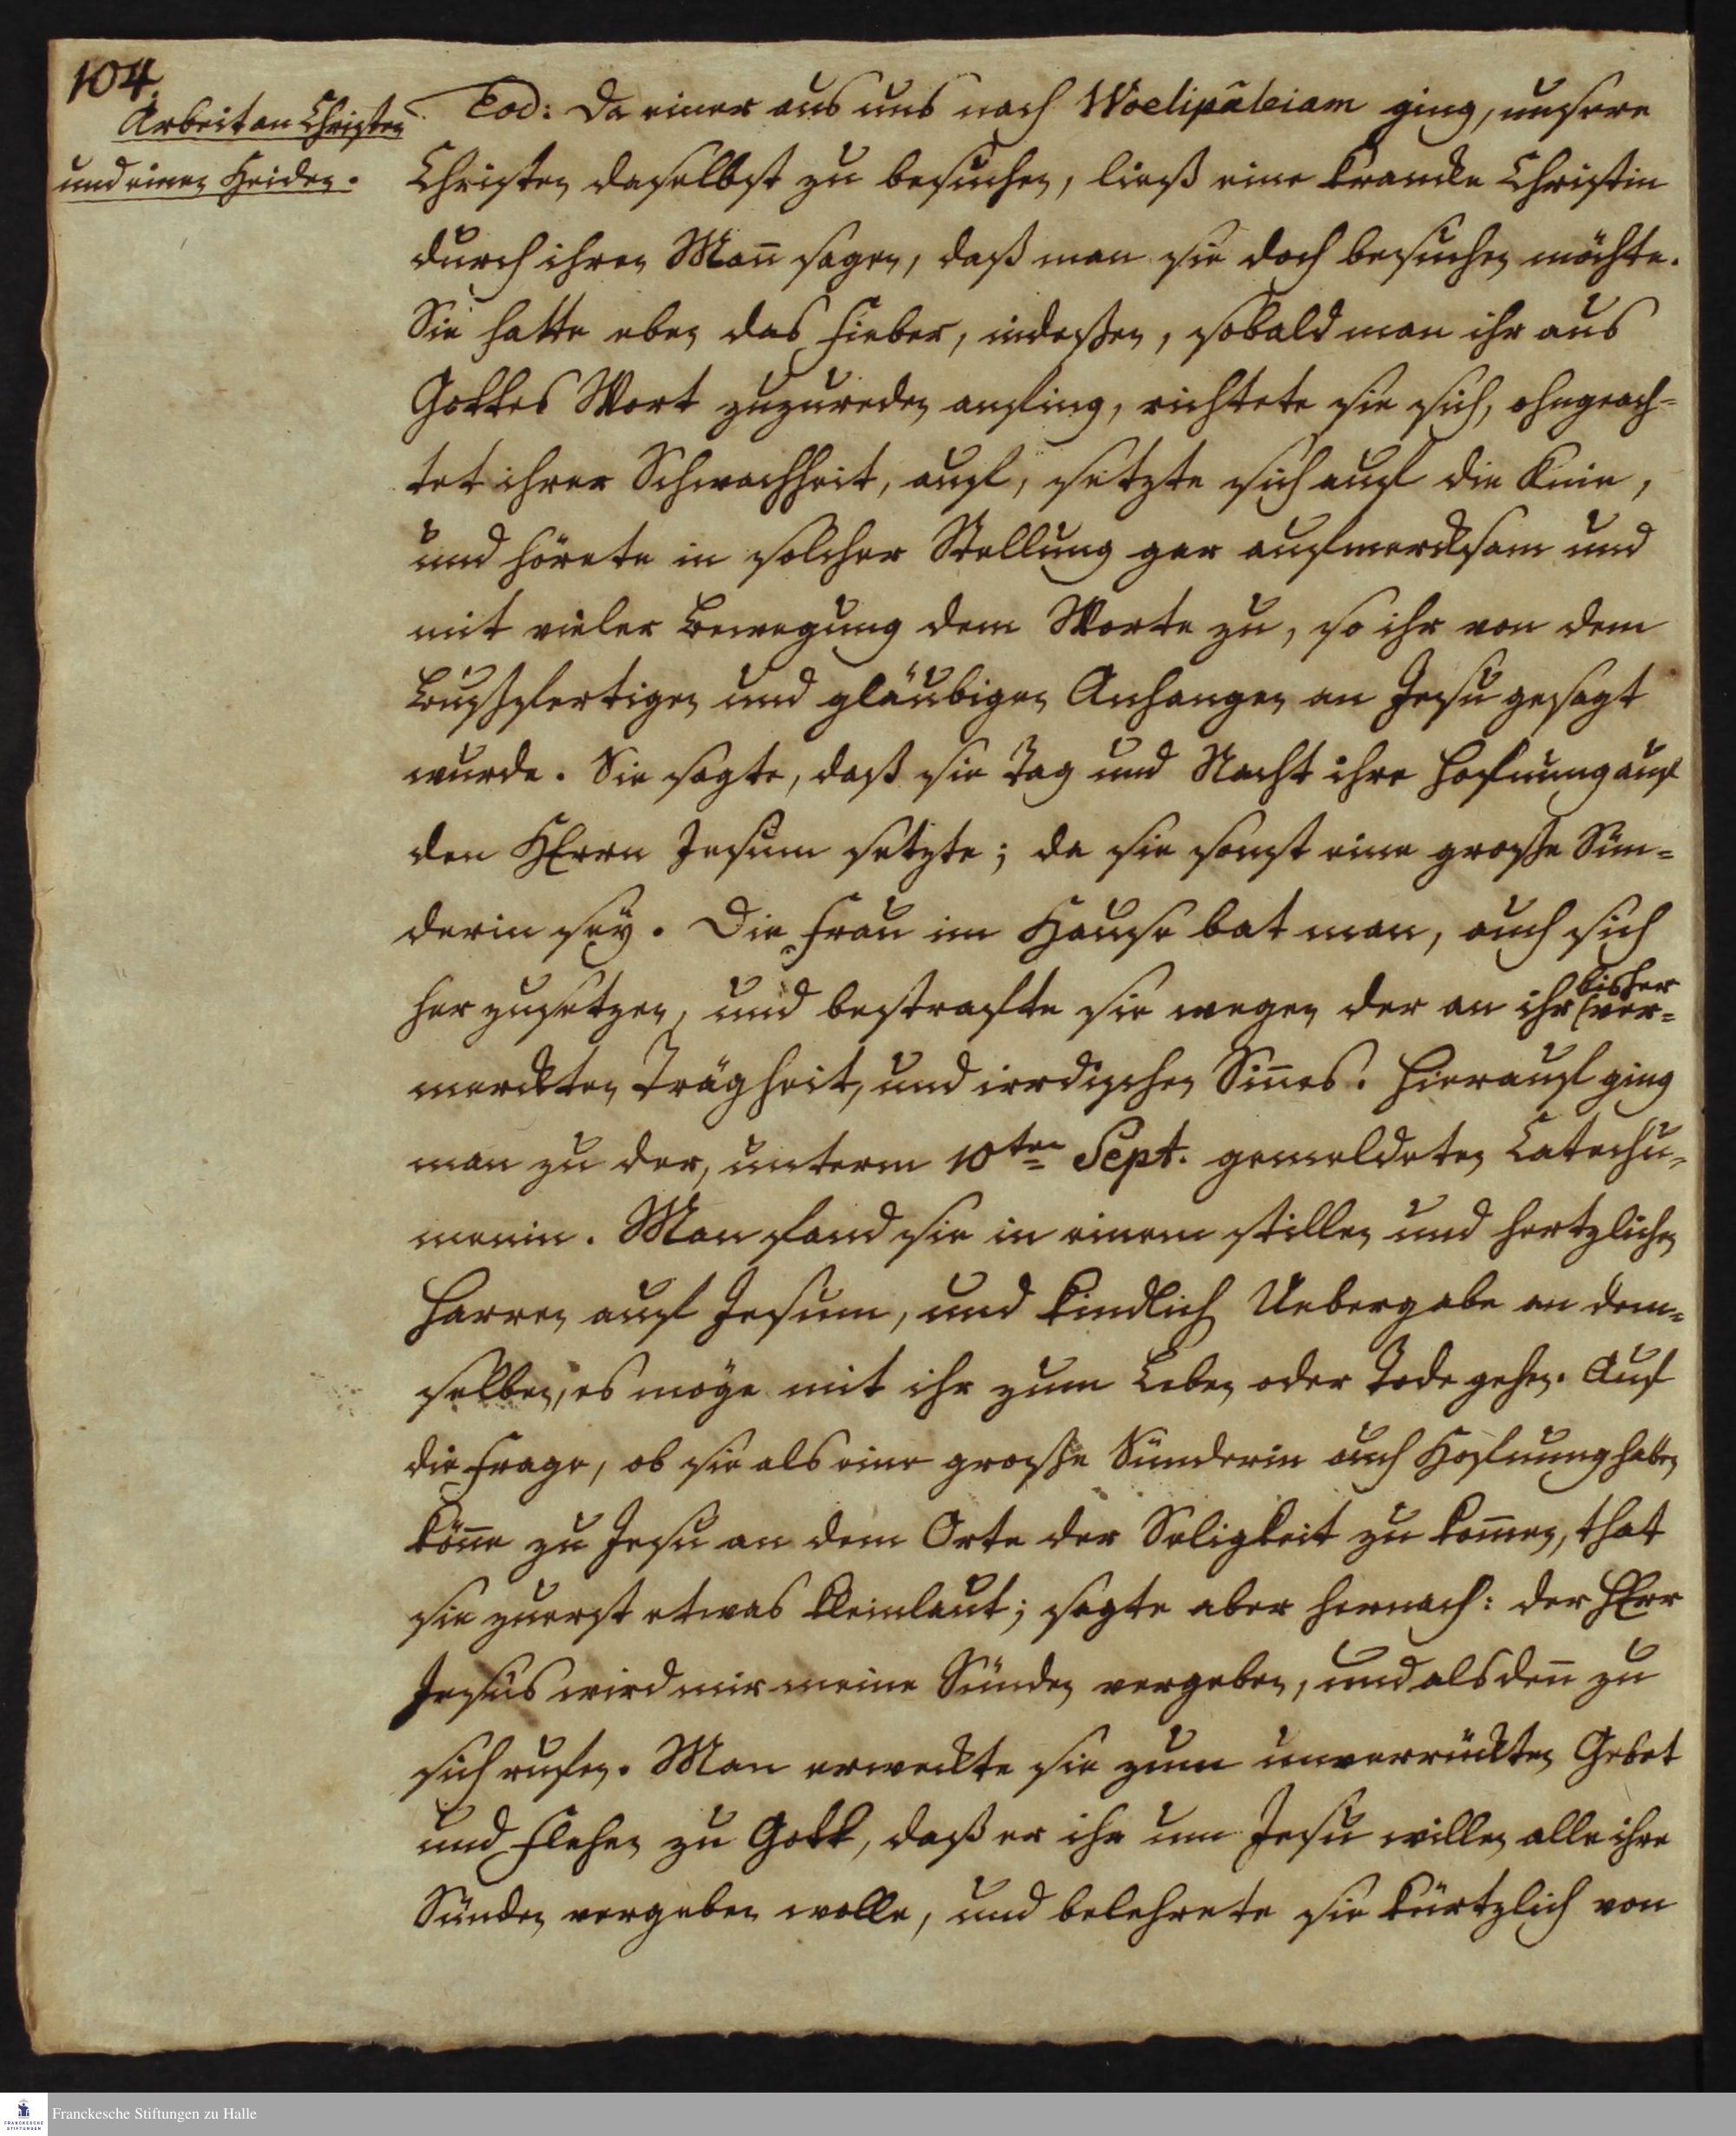 104.
Arbeit an Christen
und einen Heiden.
Eod: Da einer aus uns nach Woelipáleiam ging, unsere
Christen daselbst zu besuchen, ließ eine krancke Christin
durch ihren Mañ sagen, daß man sie doch besuchen möchte.
Sie hatte eben das Fieber, indeßen, sobald man ihr aus
Gottes Wort zuzureden anfing, richtete sie sich, ohngeach-
tet ihrer Schwachheit, auf, setzte sich auf die Knie,
und hörete in solcher Stellung gar aufmercksam und
mit vieler Bewegung dem Worte zu, so ihr von dem
bußfertigen und gläubigen Anhangen an Jesu gesagt
wurde. Sie sagte, daß sie Tag und Nacht ihre Hofnung auf
den HErrn Jesum setzte; da sie sonst eine große Sün-
derin sey. Die Frau im Hause bat man, auch sich
her zusetzen, und bestrafte sie wegen der an ihr bisher ver-
merckten Trägheit, und irrdischen Siñes. Hierauf ging
man zu der, unterm 10ten Sept. gemeldeten Catechu-
menin. Man fand sie in einem stillen und hertzlichen
Harren auf Jesum, und kindlich Uebergabe an dem-
selben, es möge mit ihr zum Leben oder Tode gehen. Auf
die Frage, ob sie als eine große Sünderin auch Hofnung haben
köñe zu Jesu an dem Orte der Seligkeit zu kom̃en, that
sie zuerst etwas kleinlaut; sagte aber hernach: der HErr
Jesus wird mir meine Sünden vergeben, und als deñ zu
sich rufen. Man erweckte sie zum unverrückten Gebet
und Flehen zu Gott, daß er ihr um Jesu willen alle ihre
Sünden vergeben wolle, und belehrete sie kürtzlich von
Franckesche Stiftungen zu Halle
FRANCKESCHE
STIFTUNGEN